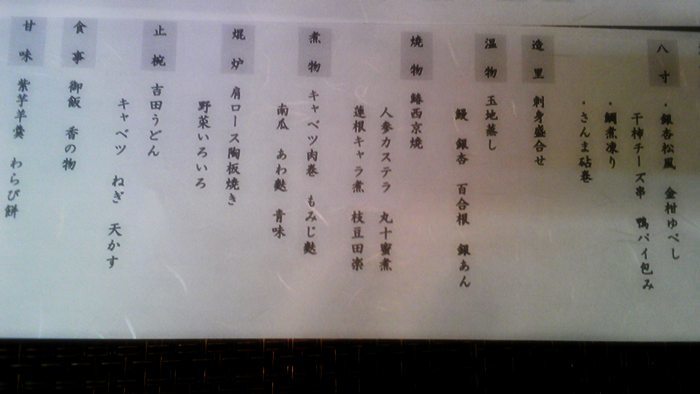 八寸 ・銀杏松風 金柑ゆべし
干柿チーズ串 鴨パイ包み
・鯛煮凍り
・さんま砧巻
造里 刺身盛合せ
温物 玉地蒸し
鰻 銀杏 百合根 銀あん
焼物 鰆西京焼
人参カステラ 丸十蜜煮
蓮根キャラ煮 枝豆田楽
煮物 キャベツ肉巻 もみじ麩
南瓜 あわ麩 青味
焜炉 肩ロース陶板焼き
野菜いろいろ
止椀 吉田うどん
キャベツ ねぎ 天かす
食事 御飯 香の物
甘味 紫芋羊羹 わらび餅